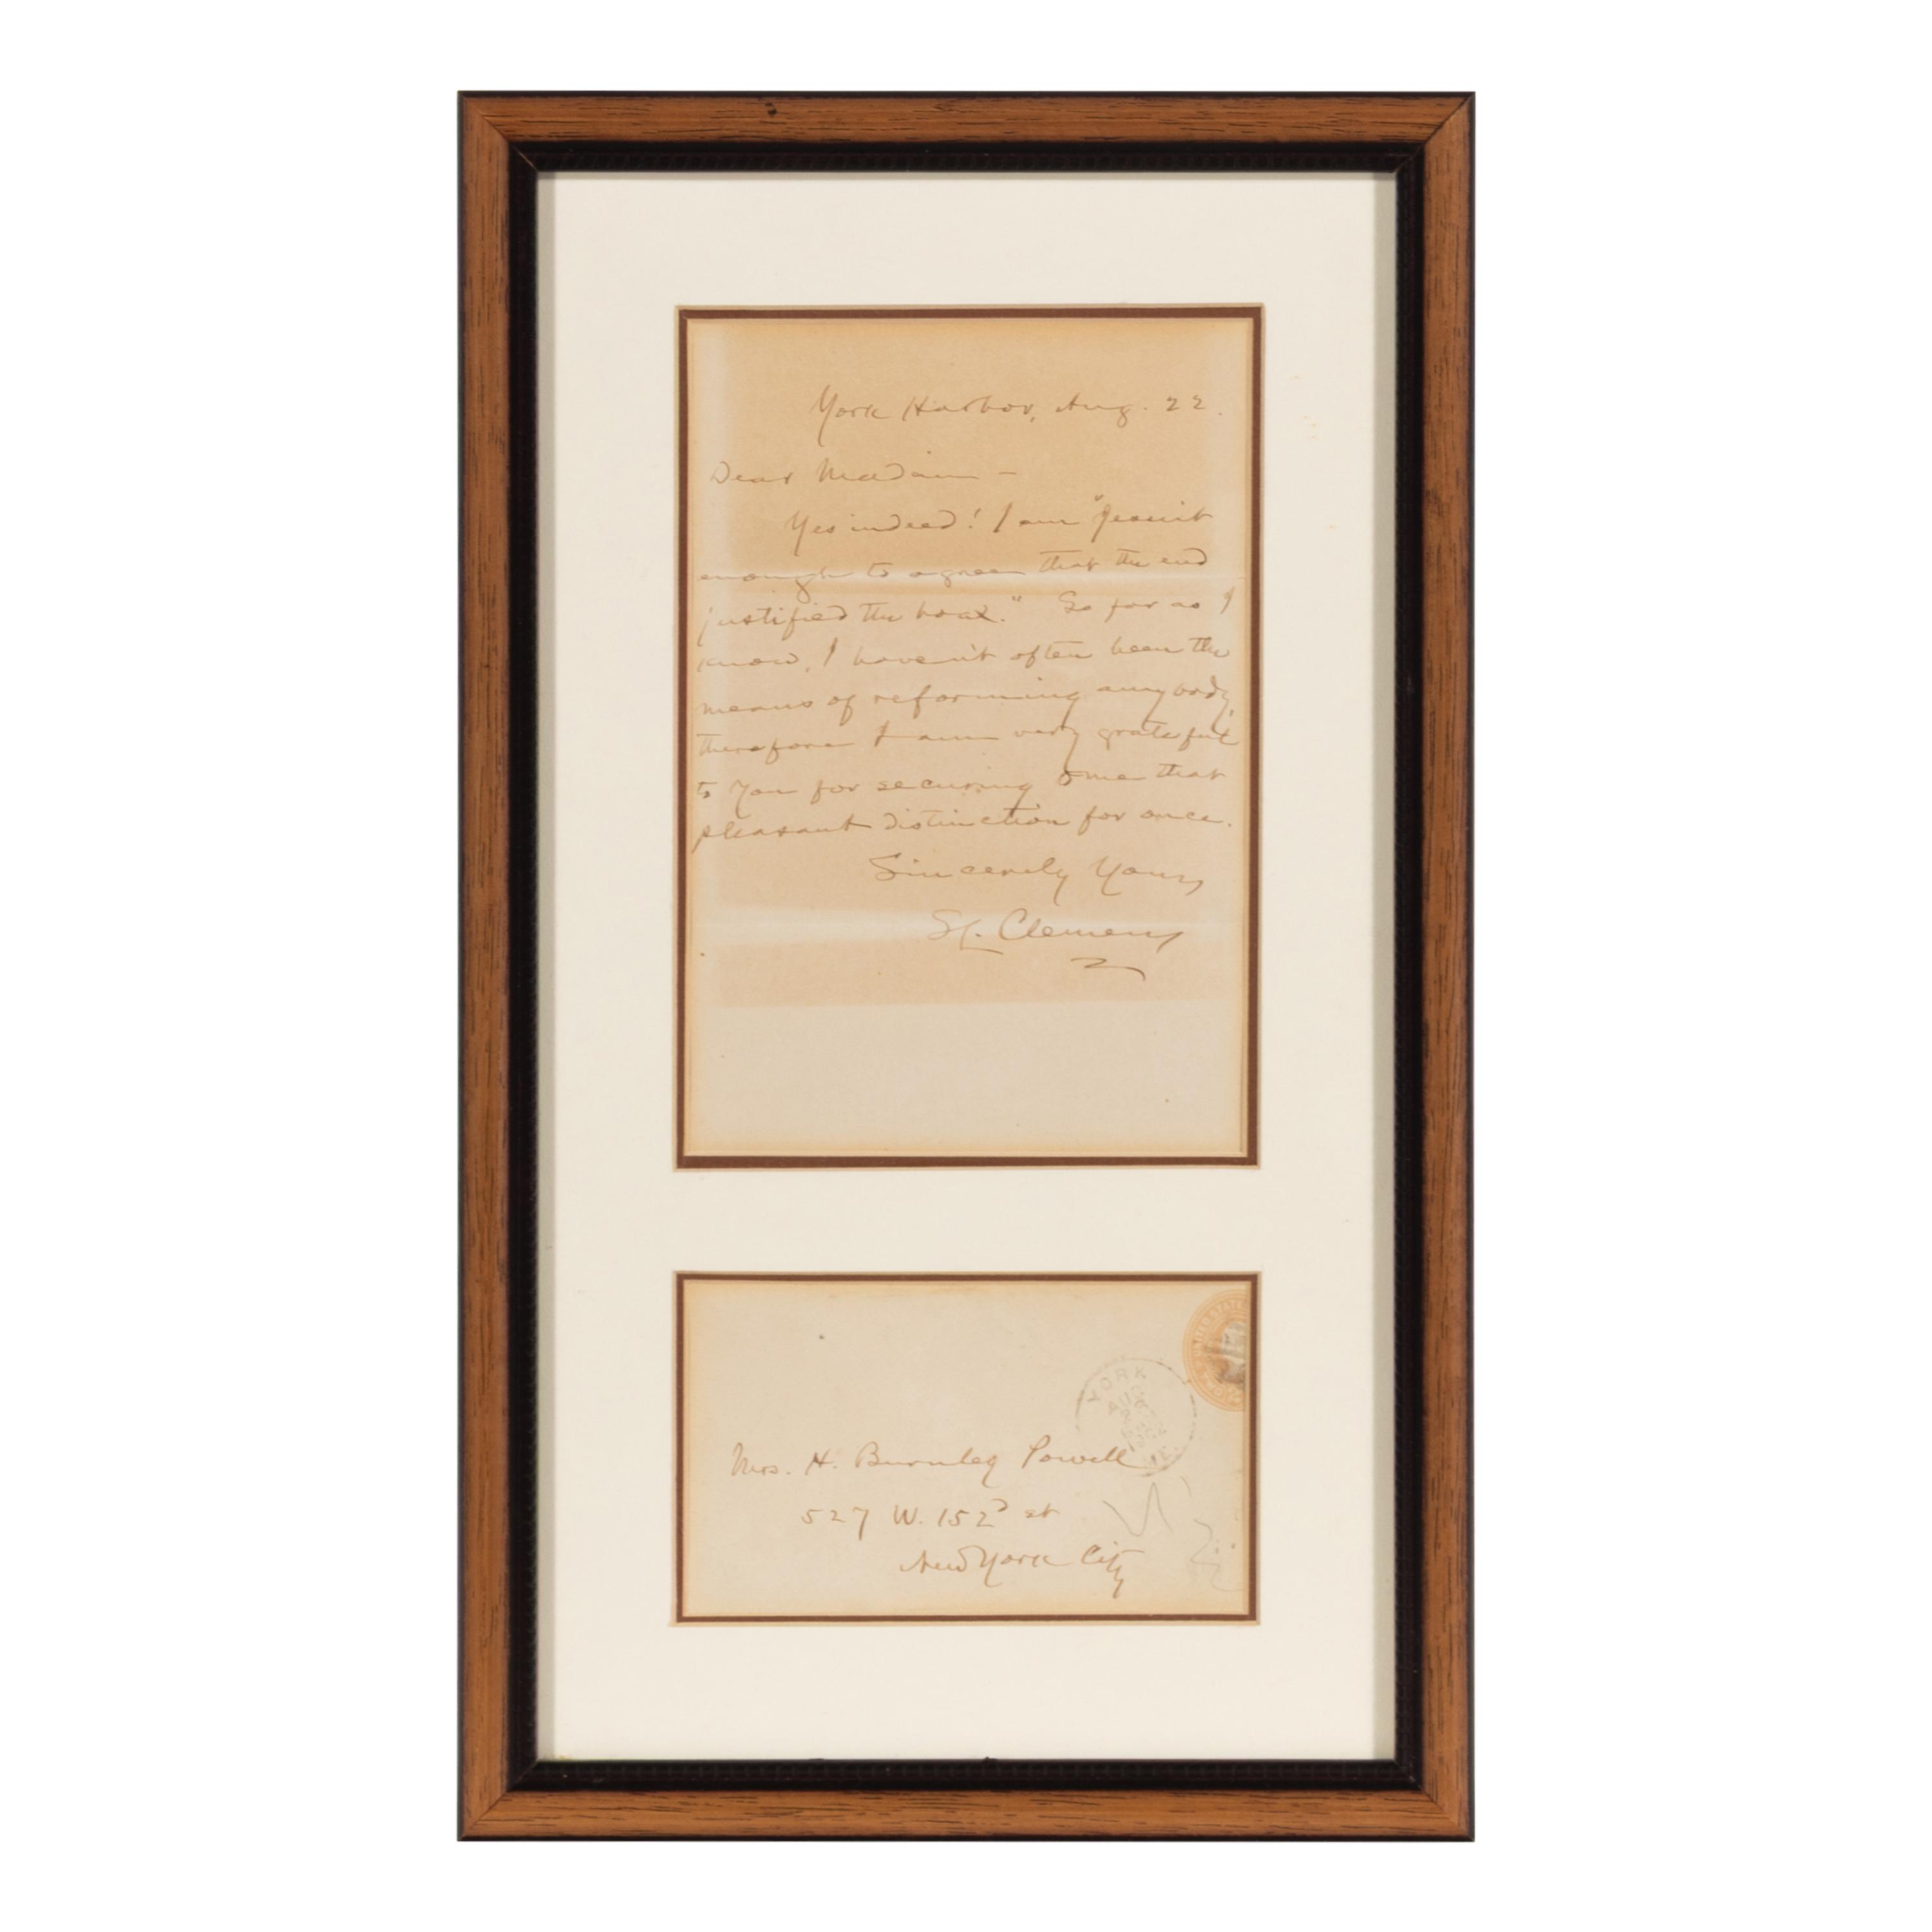 York Harbor, Aug. 22.
Dear Madam —
Yes indeed! I am "Jesuit
enough to agree that the end
justified the hoax." So far as I
know, I haven't often been the
means of reforming anybody,
therefore I am very grateful
to you for securing to me that
pleasant distinction for once.
Sincerely Yours
SL. Clemens
UNITED STATE
YORK
AUG
1902
ME.
Mrs. H. Burnley Powell
527 W. 152d st
New York City